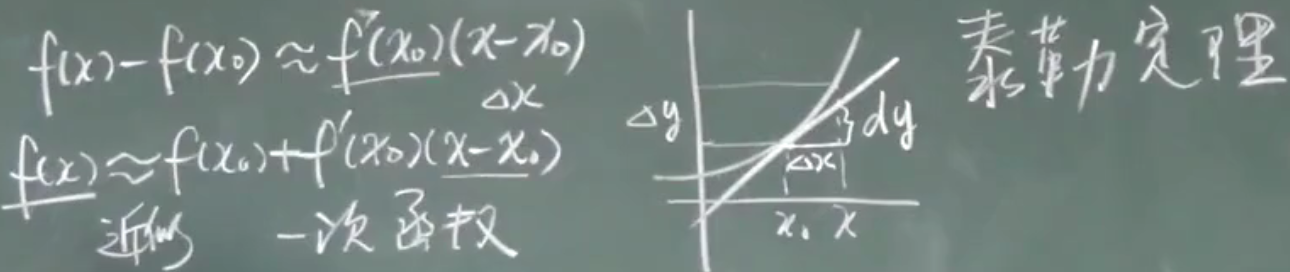 f(x)-f(x₀)≈f'(x₀)(x-x₀)
△x
f(x)≈f(x₀)+f'(x₀)(x-x₀)
近似 一次函数
△y
dy
△x
x₀ x
泰勒定理